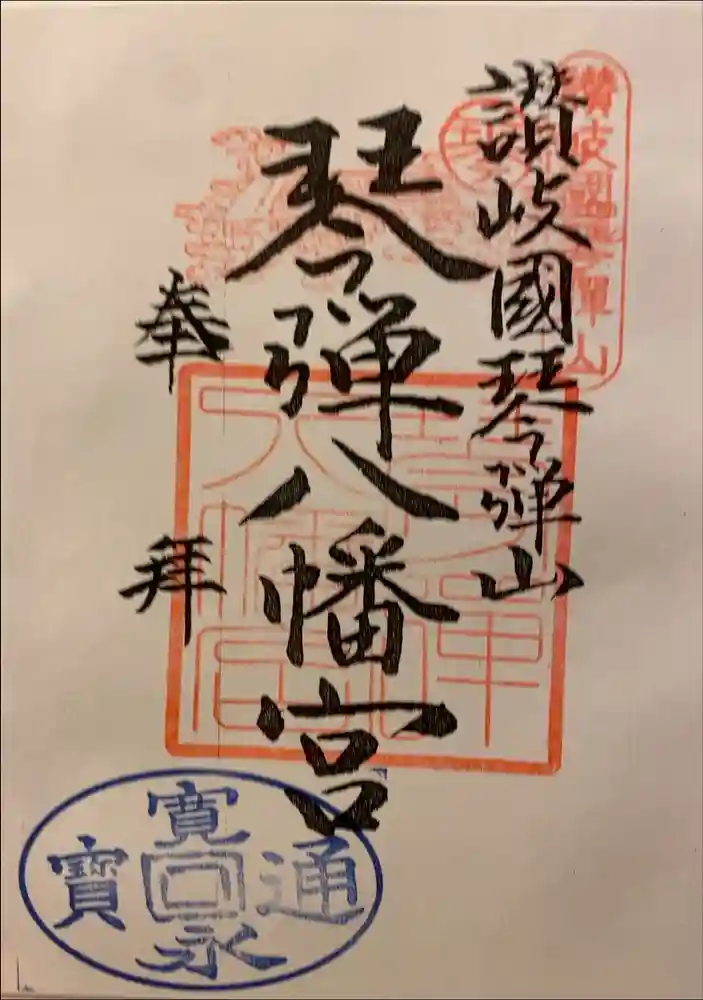 讃岐國琴弾山
讃岐國琴弾山
琴弾八幡宮
琴弾八幡宮
奉拝
寛永通寳